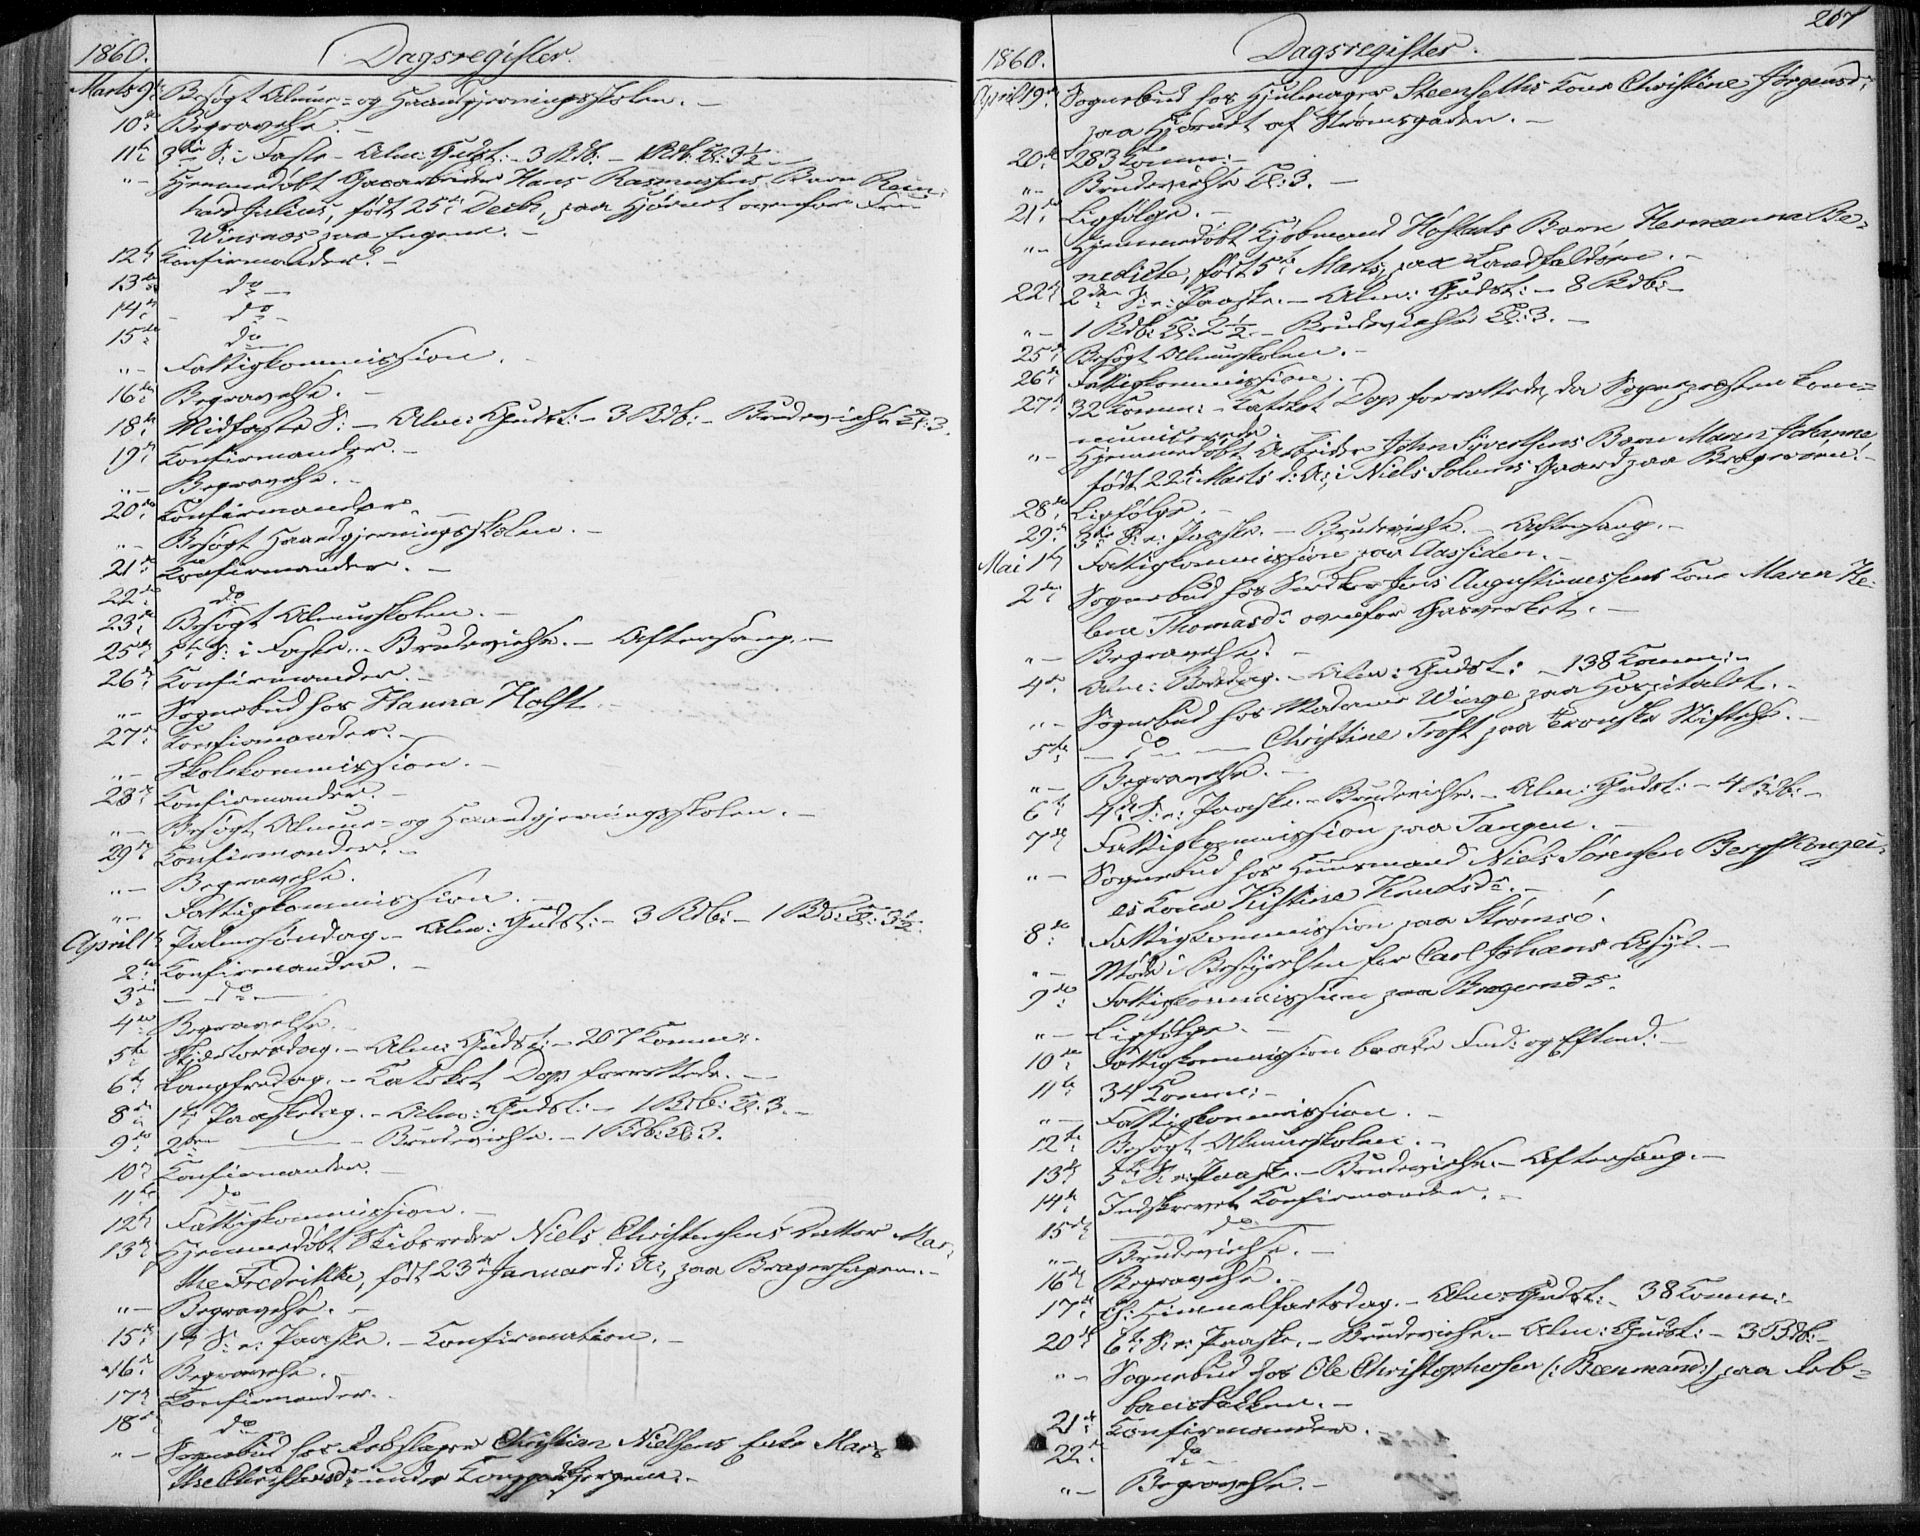 1860. Dagsregister.
Marts 9de Besøgt Almue- og Haandgjerningsskolen. –
10de Begravelse. –
11te 3die S: i Faste – Alm: Gudst: – 3 Rdb: – 1 Rdb: Kl: 3½ –
"– Hjemmedøbt Gaardarbeider Hans Rasmussens Barn Rein-
hard Julius, født 25de Decbr, paa Hjørnet ovenfor Fru
Winsnæs paa Engene. –
12te Konfirmander. –
13de do –
14de – do –
15de do –
"– Fattigkommission. –
16de Begravelse. –
18de Midfaste S: – Alm: Gudst: – 3 Rdb: – Brudevielse Kl: 3.
19de Konfirmander. –
"– Begravelse. –
20de Konfirmander. –
"– Besøgt Haandgjerningsskolen. –
21de Konfirmander. –
22de do
23de Besøgt Almueskolen. –
25de 5te S: i Faste. – Brudevielse. – Aftensang. –
26de Konfirmander. –
"– Sognebud hos Hanna Holst. –
27de Konfirmander. –
"– Skolekommission. –
28de Konfirmander. –
"– Besøgt Almue- og Haandgjerningsskolen. –
29de Konfirmander. –
"– Begravelse.
"– Fattigkommission. –
April 1te Palmesøndag. – Alm: Gudst: – 3 Rdb: – 1 Rdb: Kl: 3½.
2den Konfirmander. –
3die – do –
4de Begravelse. –
5te Skjertorsdag. – Alm: Gudst: – 207 Komm:
6te Langfredag. – Katekel Dop forrettede. –
8de 1te Paaskedag. – Alm: Gudst: – 1 Rdb: Kl: 3. –
9de 2den – – Brudevielse. – 1 Rdb: Kl: 3.
10de Konfirmander. –
11te do
12te Fattigkommission. –
13de Hjemmedøbt Skibsreder Niels Christensens Datter Mar-
the Fredrikke, født 23de Januar d: A:, paa Bragerhagen. –
"– Begravelse. –
15de 1te S: e: Paaske. – Konfirmation. –
16de Begravelse. –
17de Konfirmander. –
18de do –
"– Sognebud hos Christian Nielsens Enke Mar-
the Christensd: under
1860. Dagsregister. 207
April 19de Sognebud hos Hjulmager Steenseths Kone Christine Jørgensd:
paa Hjørnet af Strømsgaden. –
20de 283 Komm: –
"– Brudevielse Kl: 3. –
21de Ligfølge. –
"– Hjemmedøbt Kjøbmand Høstads Barn Hermanna Be-
nedicte, født 5te Marts, paa Landfaldøen. –
22de 2den S: e: Paaske. – Alm: Gudst: – 8 Rdb: –
"– 1 Rdb: Kl: 2½. – Brudevielse Kl: 3. –
25de Besøgt Almueskolen. –
26de Fattigkommission. –
27de 32 Komm: – Katekel Dop forrettede, da Sognepresten kom-
municerede.
"– Hjemmedøbt Arbeider John Syvertsens Barn Maren Johanne,
født 22de Marts d: A:, i Niels Solums Gaard paa Bragerøen. –
28de Ligfølge. –
29de 3die S: e: Paaske. – Brudevielse. – Aftensang. –
Mai 1te Fattigkommission paa Aassiden. –
2den Sognebud hos Jens Augustinussens Kone Maren He-
lene Thomasd: ovenfor Gasværket. –
"– Begravelse. –
4de Alm: Bededag. – Alm: Gudst: – 138 Komm: –
"– Sognebud hos Madame Winge paa Hospitalet. –
5te – do – Christine Trost paa Kronske Stiftelse. –
"– Begravelse. –
6te 4de S: e: Paaske. – Brudevielse. – Alm: Gudst: – 4 Rdb: –
7de Fattigkommission paa Tangen. –
"– Sognebud hos Huusmand Niels Sørensen
es Kone Kistine Knudsd: –
8de Fattigkommission paa Strømsø.
"– Møde i Bestyrelsen for Carl Johans Asyl. –
9de Fattigkommission paa Bragernæs.
"– Ligfølge. –
10de Fattigkommission baade Form: og Efterm: –
11te 34 Komm: –
"– Fattigkommission. –
12te Besøgt Almueskolen. –
13de 5te S: e: Paaske. – Brudevielse. – Aftensang. –
14de Indskrevet Konfirmander. –
15de – do –
"– Brudevielse. –
16de Begravelse. –
17de Ch: Himmelfartsdag. – Alm: Gudst: – 38 Komm: –
20de 6te S: e: Paaske. – Brudevielse. – Alm: Gudst: – 3 Rdb: –
"– Sognebud hos Ole Christophersen (: Beenmand :) paa
–
21de Konfirmander. –
22de do –
"– Begravelse. –